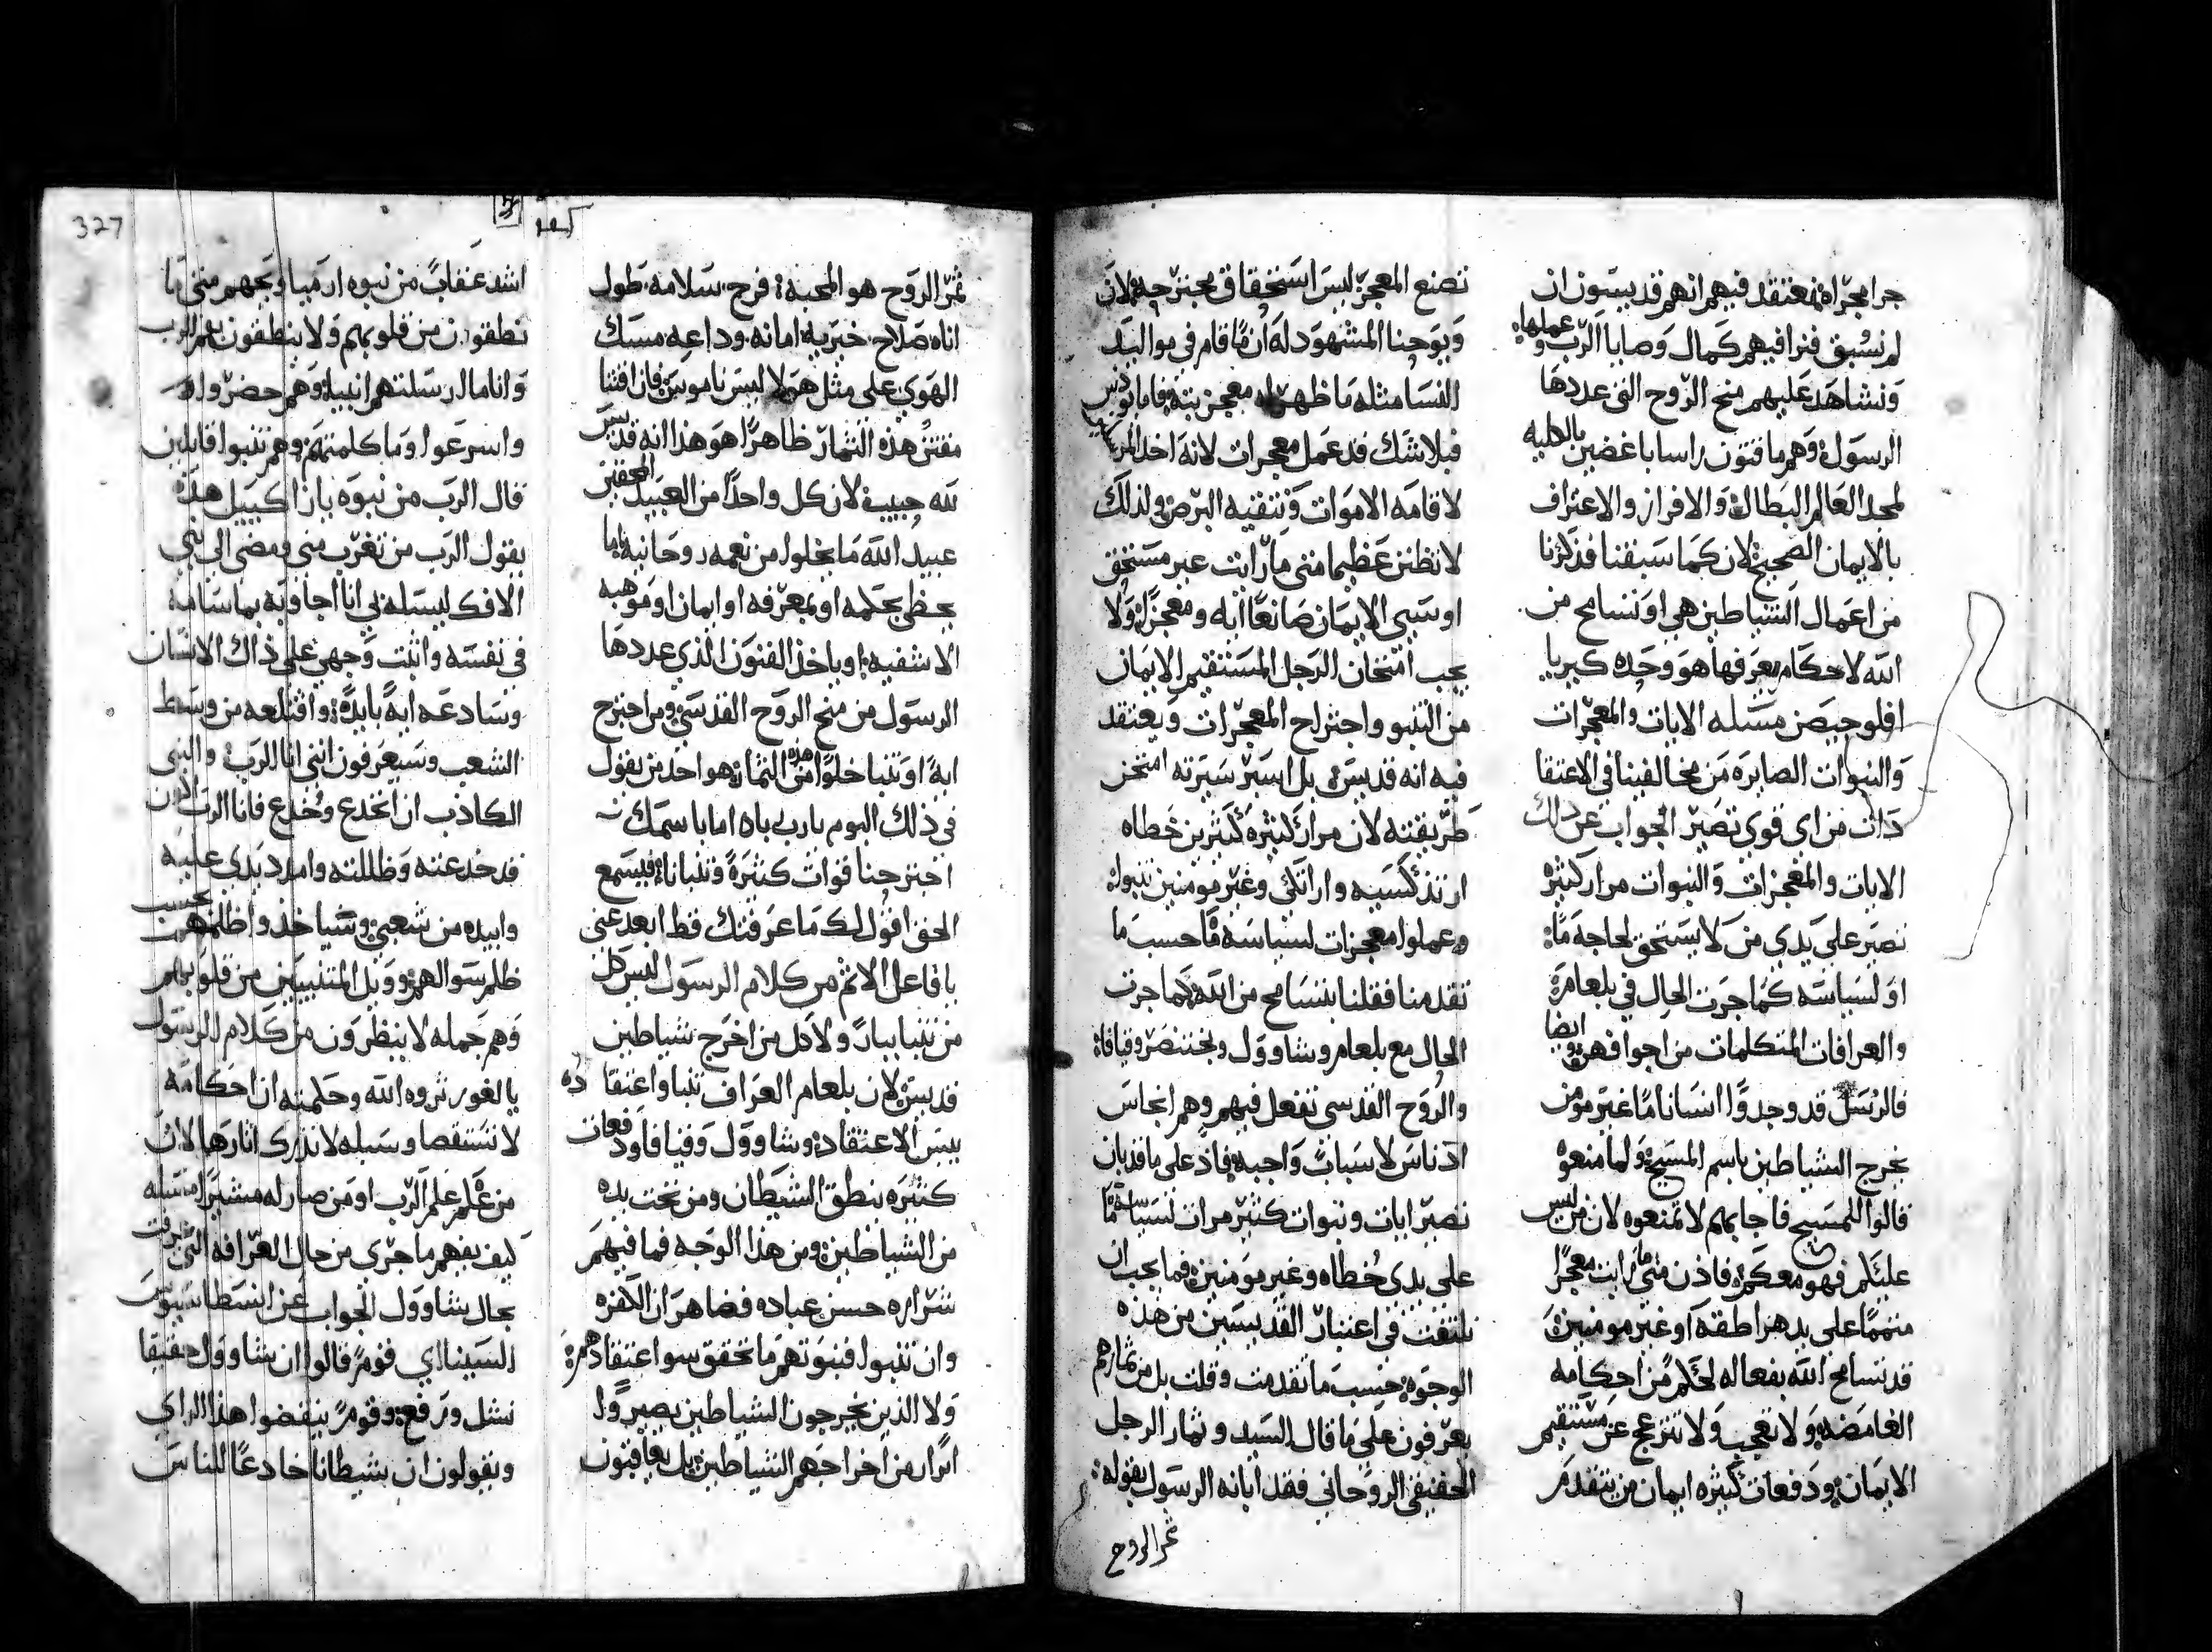 جرا معجزاه نعتقد فيهم انهم قد يبينون ان
لم نسبق فنرا فيهم كمال وصايا الرب وعملها
ونشاهد عليهم منح الروح التي عددها
الرسول وهم ما فتون راسا باغضين بالكليه
لمجد العالم البطال والافراز والاعتراف
بالايمان الصحيح لان كما سبقنا فذكرنا
من اعمال الشياطين هي او نتسامح من
الله لاحكام يعرفها هو وحده كيريا
افلوجيصن مسله الايات والمعجزات
والنبوات الصايره من مخالفينا في الاعتقا
دات من اي قوي تصير الجواب عن ذلك
الايات والمعجزات والنبوات مرار كثيره
تصير على يدي من لا يستحق لحاجه ما
او لسياسه كما جرت الحال في بلعام
والعرافات المتكلمات من اجوافهن وايضا
فالرسل قد وجدوا انسانا ما غير مومن
يخرج الشياطين باسم المسيح ولما منعوه
قالوا للمسيح فاجابهم لا تمنعوه لان من ليس
عليكم فهو معكم فاذن متي ما رايت معجزا
متمما على يد هراطقه او غير مومنين
قد تسامح الله بفعاله لحكم من احكامه
الغامضه ولا تعجب ولا تنزعج عن مستقيم
الايمان ودفعات كثيره ايمان من يتقدم
تصنع المعجز ليس استحقاق مجترحه لان
ويوحنا المشهود له ان ما قام في مواليد
النسا مثله ما ظهر له معجز بته فاما يودس
فبلا شك قد عمل معجرات لانه احد المرسلين
لاقامه الاموات وتنقيه البرص ولذلك
لا تظنن عظيما متي ما رايت غير مستحق
او سيي الايمان صانعا ايه ومعجزا ولا
يجب امتحان الرجل المستقيم الايمان
من التنبو واجتراح المعجرات ويعتقد
فيه انه قديس بل اسير سيرته امتحن
طريقته لان مرار كثيره كثيرين خطاه
ارتدكسيه واراتكي وغير مومنين تنبوا
وعملوا معجزات لسياسه ما حسب ما
تقدمنا فقلنا بتسامح من الله كما جرت
الحال مع بلعام وشاوول وبختنصر وقيافا
والروح القدسي تفعل فيهم وهم انجاس
ادناس لاسباب واجبه فاذ على ما قد بان
تصير ايات ونبوات كثير مرات لسياسه ما
على يدي خطاه وغير مومنين فما يجب ان
نلتفت في اعتبار القديسين من هذه
الوجوه حسب ما تقدمت وقلت بل من ثمارهم
يعرفون على ما قال السيد وثمار الرجل
الحقيقي الروحاني فقد ابانه الرسول بقوله
ثمر الروح
ثمر الروح هو المحبه فرح سلامه طول
اناه صلاح خيريه امانه وداعه مسك
الهوي على مثل هولا ليس ناموس فان اقتنا
مقتن هذه الثمار ظاهرا هو هذا انه قديس
لله حبيب لان كل واحدا من العبيد المحقين
عبيد الله ما يخلوا من نعمه روحانيه اما
يحظي بحكمه او بمعرفه او ايمان او موهبه
الاشفيه او ياخذ الفنون الذي عددها
الرسول من منح الروح القدسي ومن اجترح
ايه او تنبا خلوا من هذه الثمار هو احد من يقول
في ذلك اليوم يارب يارب اما باسمك
اجترحنا قوات كثيره وتنباناء فيسمع
الحق اقول لك ما عرفتك قط ابعد عني
يا فاعل الاثم من كلام الرسول ليس كل
من تنبا بارا ولا كل من اخرج شياطين
قديس لان بلعام العراف تنبا واعتقاده
بيس الاعتقاد وشاوول وقيافا ودفعات
كثيره ينطق الشيطان ومن تحت يده
من الشياطين ومن هذا الوجه فما فيهم
شراره حسن عباده فضاهر ان الكفره
وان تنبوا فنبوتهم ما تحقق سوا اعتقادهم
ولا الذين يخرجون الشياطين يصيروا
ابرار من اخراجهم الشياطين بل يعاقبون
327
اشد عقاب من نبوه ارميا وبجهم متي ما
نطقوا من قلوبهم ولا ينطقون بفم الرب
وانا ما ارسلتهم انبيا وهم حضروا
واسرعوا وما كلمتهم وهم تنبوا قايلين
قال الرب من نبوه يازاكييل هذه
يقول الرب من تغرب مني ومضي الى نبي
الافك ليسله بي انا اجاوبه بما سامه
في نفسه واثبت وجهي على ذاك الانسان
وسادعه ايه بايده واقتلعه من وسط
الشعب وسيعرفون انني انا الرب والنبي
الكاذب ان انخدع وخدع فانا الرب الان
قد خدعته وظللته وامدد يدي عليه
وابيده من شعبي وسياخذوا ظلمهم بحسب
ظلم سوالهم وويل المتنبيين من قلوبهم
وهم جمله لا ينظرون من كلام الرسول
يا لغور ثروه الله وحكمته ان احكامه
لا تستقصا وسبله لا تدرك اثارها لان
من علم علم الرب او من صار له مشيرا مسله
كيف يفهم ما جري من حال العرافه التي عرفت
بحال شاوول الجواب عن انسطاسيوس
السينااي قوم قالوا ان شاوول حقيقا
نشل ورفع وقوم ينقضوا هذا الراي
ويقولون ان شيطانا خادعا للناس